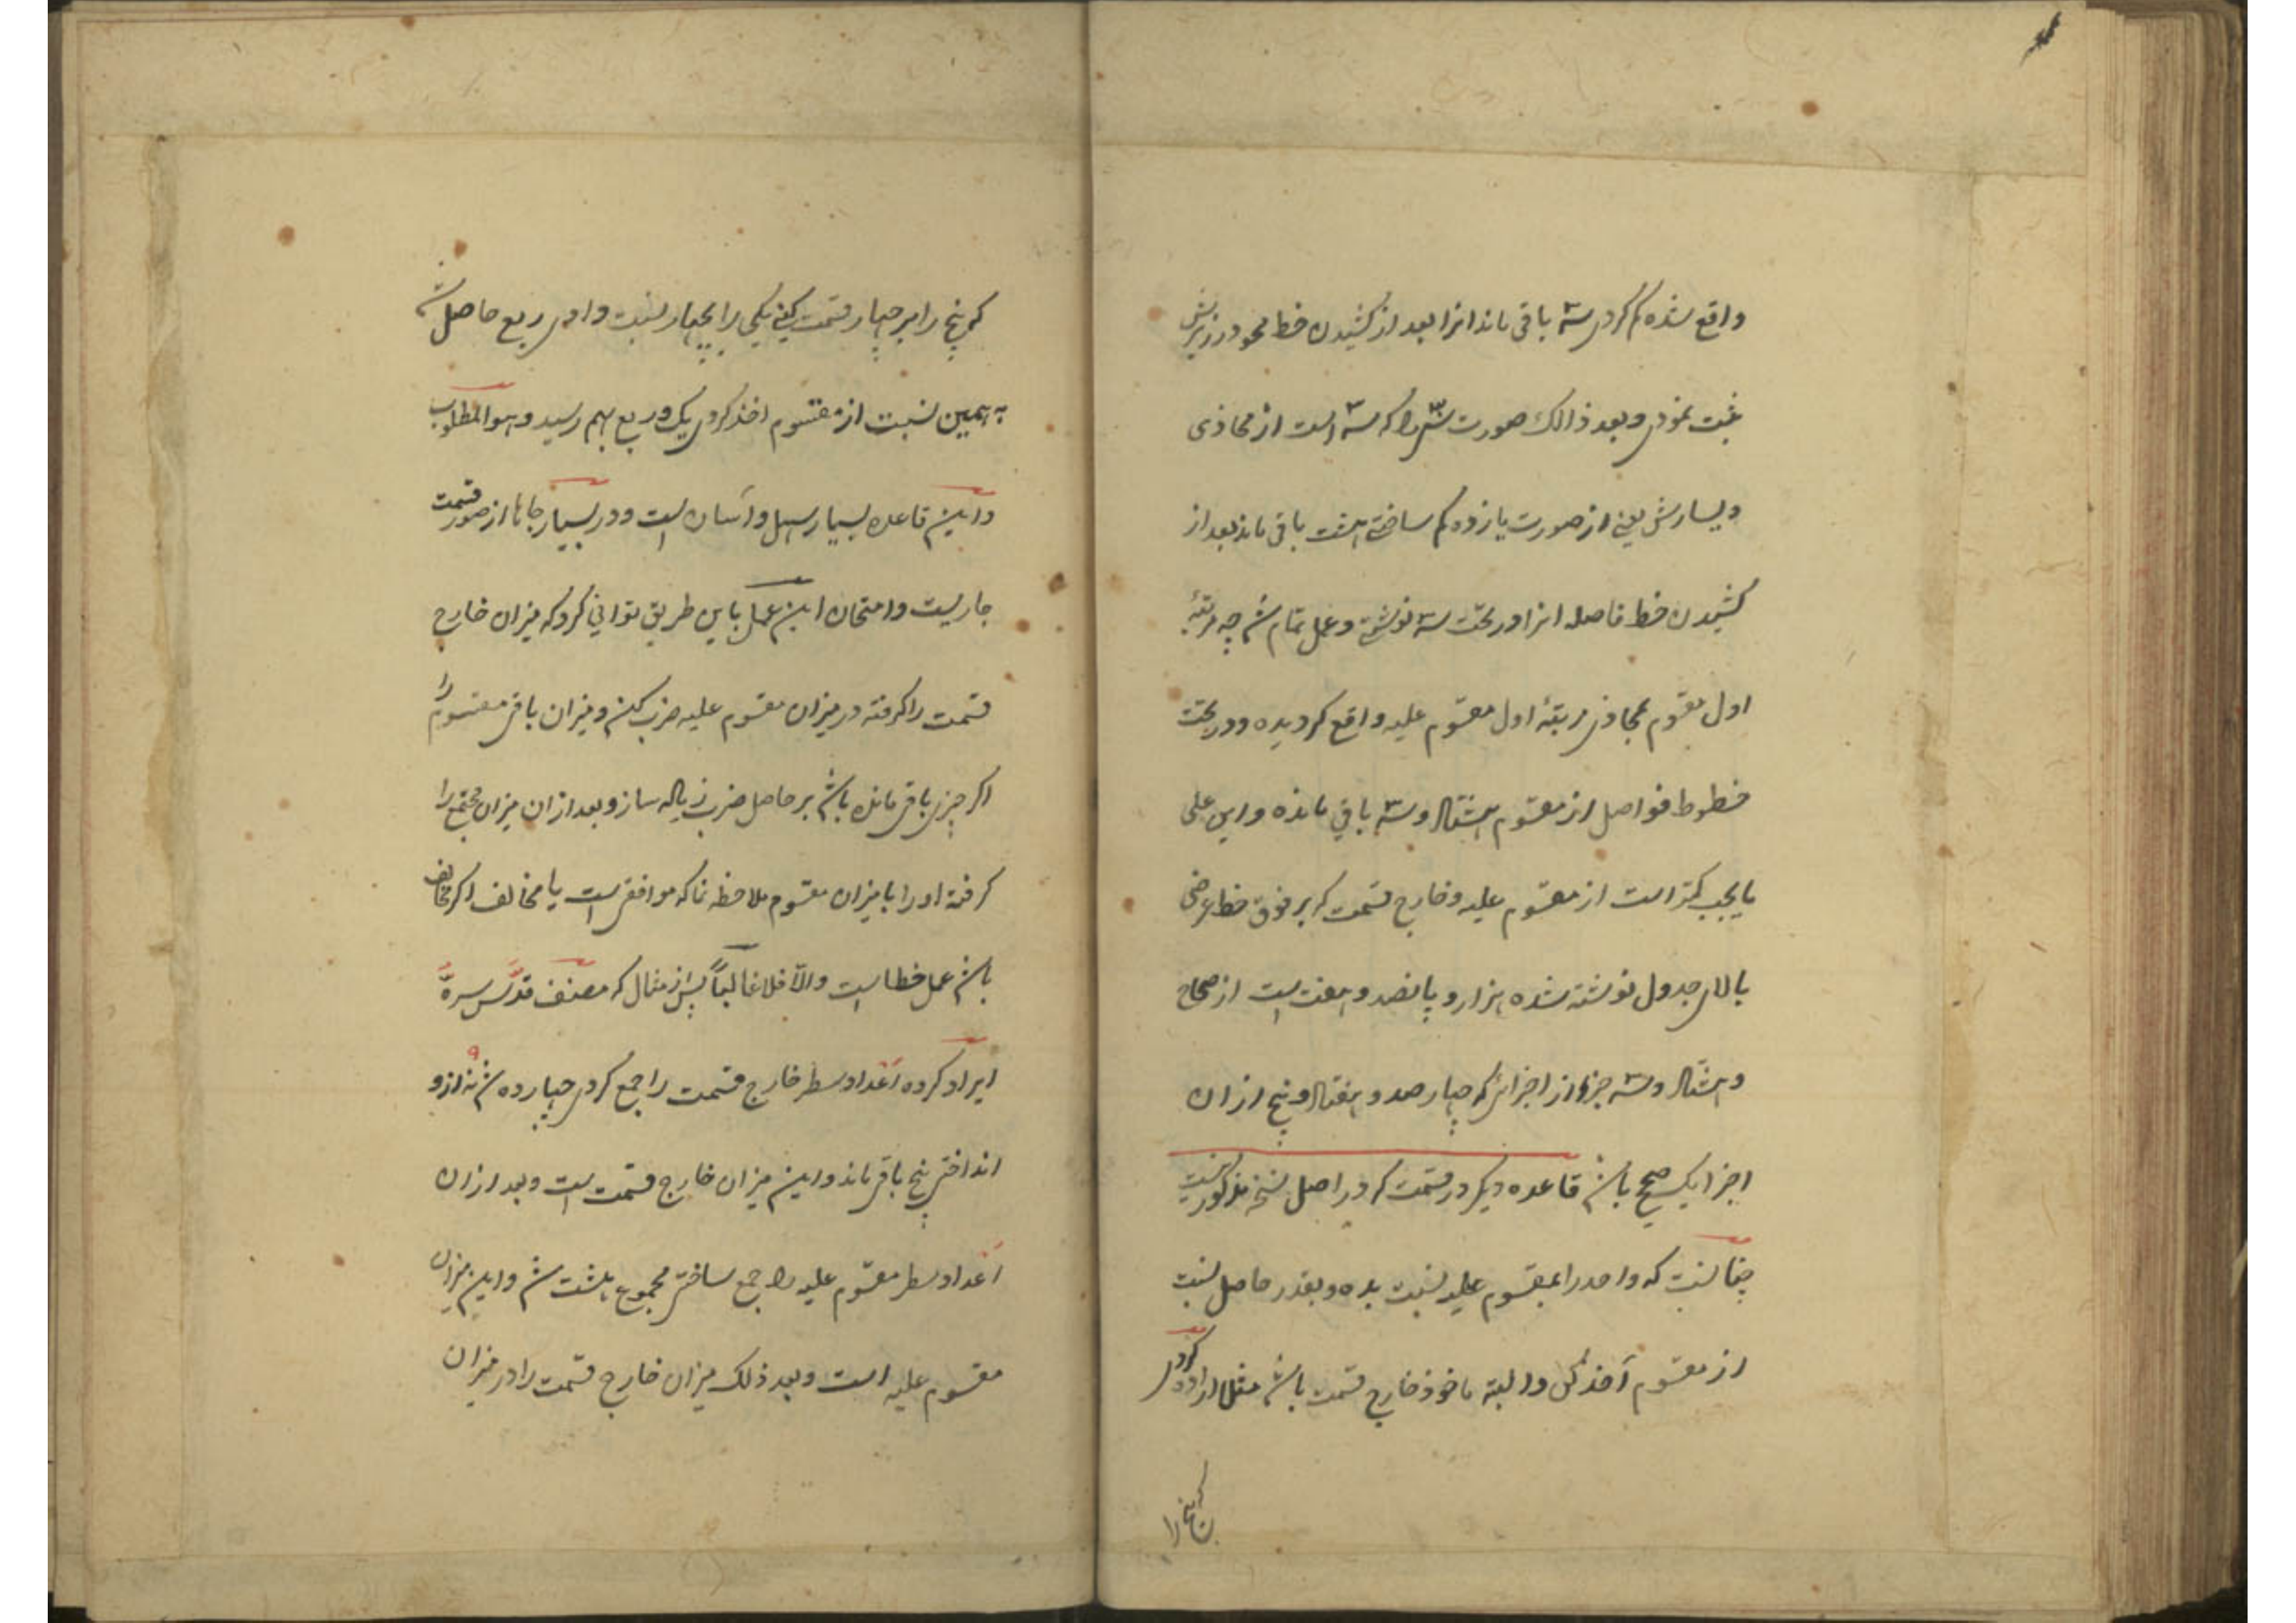 واقع شده کم کردی سه باقی ماند انرا بعد از کشیدن خط محو در زیرش
ثبت نمودی و بعد ذالک صورت ش را که سه است از محاذی
و یسارش یعنے از صورت یازده کم ساختی هشت باقی ماند بعد از
کشیدن خط فاصله انرا در تحت سه نوشتی و عمل تمام شد چه مرتبهٔ
اول مقسوم بمحاذی مرتبهٔ اول مقسوم علیه واقع کردیده و در تحت
خطوط فواصل از مقسوم هشتاد و سه باقی مانده و این علی
ما یجب کمتر است از مقسوم علیه و خارج قسمت که بر فوق خط عرضی
بالای جدول نوشته شده هزار و پانصد و هفت است از صحاح
و هشتاد و سه جزو از اجزائی که چهار صد و هفتاد و پنج از ان
اجزا یک صحیح باشد قاعده دیکر در قسمت که در اصل نسخه مذکور نیست
چنانست که واحد را بمقسوم علیه نسبت بده و بقدر حاصل نسبت
از مقسوم آخذ کن و البته ماخوذ خارج قسمت باشد مثلا اراده کردی
که پنج را
که پنج را بر چهار قسمت کنی یکی را بچهار نسبت دادی ربع حاصل شد
به همین نسبت از مقسوم اخذ کردی یک و ربع بهم رسید و هو المطلوب
و این قاعده بسیار سهل و آسان است و در بسیار جاها از صور قسمت
جاریست و امتحان این عمل باین طریق توانی کرد که میزان خارج
قسمت را کرفته در میزان مقسوم علیه ضرب کن و میزان باقی مقسوم را
اکر چیزی باقی مانده باشد بر حاصل ضرب زیاده ساز و بعد از ان میزان مجتمع را
کرفته او را با میزان مقسوم ملاحظه نما که موافق است یا مخالف اکر مخالف
باشد عمل خطا است و الّا فلا غالباً پس از مثال که مصنف قدّس سرهّ
ایراد کرده اعداد سطر خارج قسمت را جمع کردی چهارده شد نه از و
انداختی پنج باقی ماند و این میزان خارج قسمت است و بعد از ان
اعداد سطر مقسوم علیه را جمع ساختی مجموع هشت شد و این میزان
مقسوم علیه است و بعد ذلک میزان خارج قسمت را در میزان